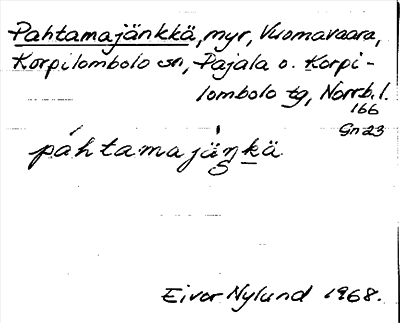 Pahtamajänkkä, myr, Vuomavaara,
Korpilombolo sn, Pajala o. Korpi-
lombolo tg, Norrb. l.
166
Gn 23
páhtamajáŋkä
Eivor Nylund 1968.